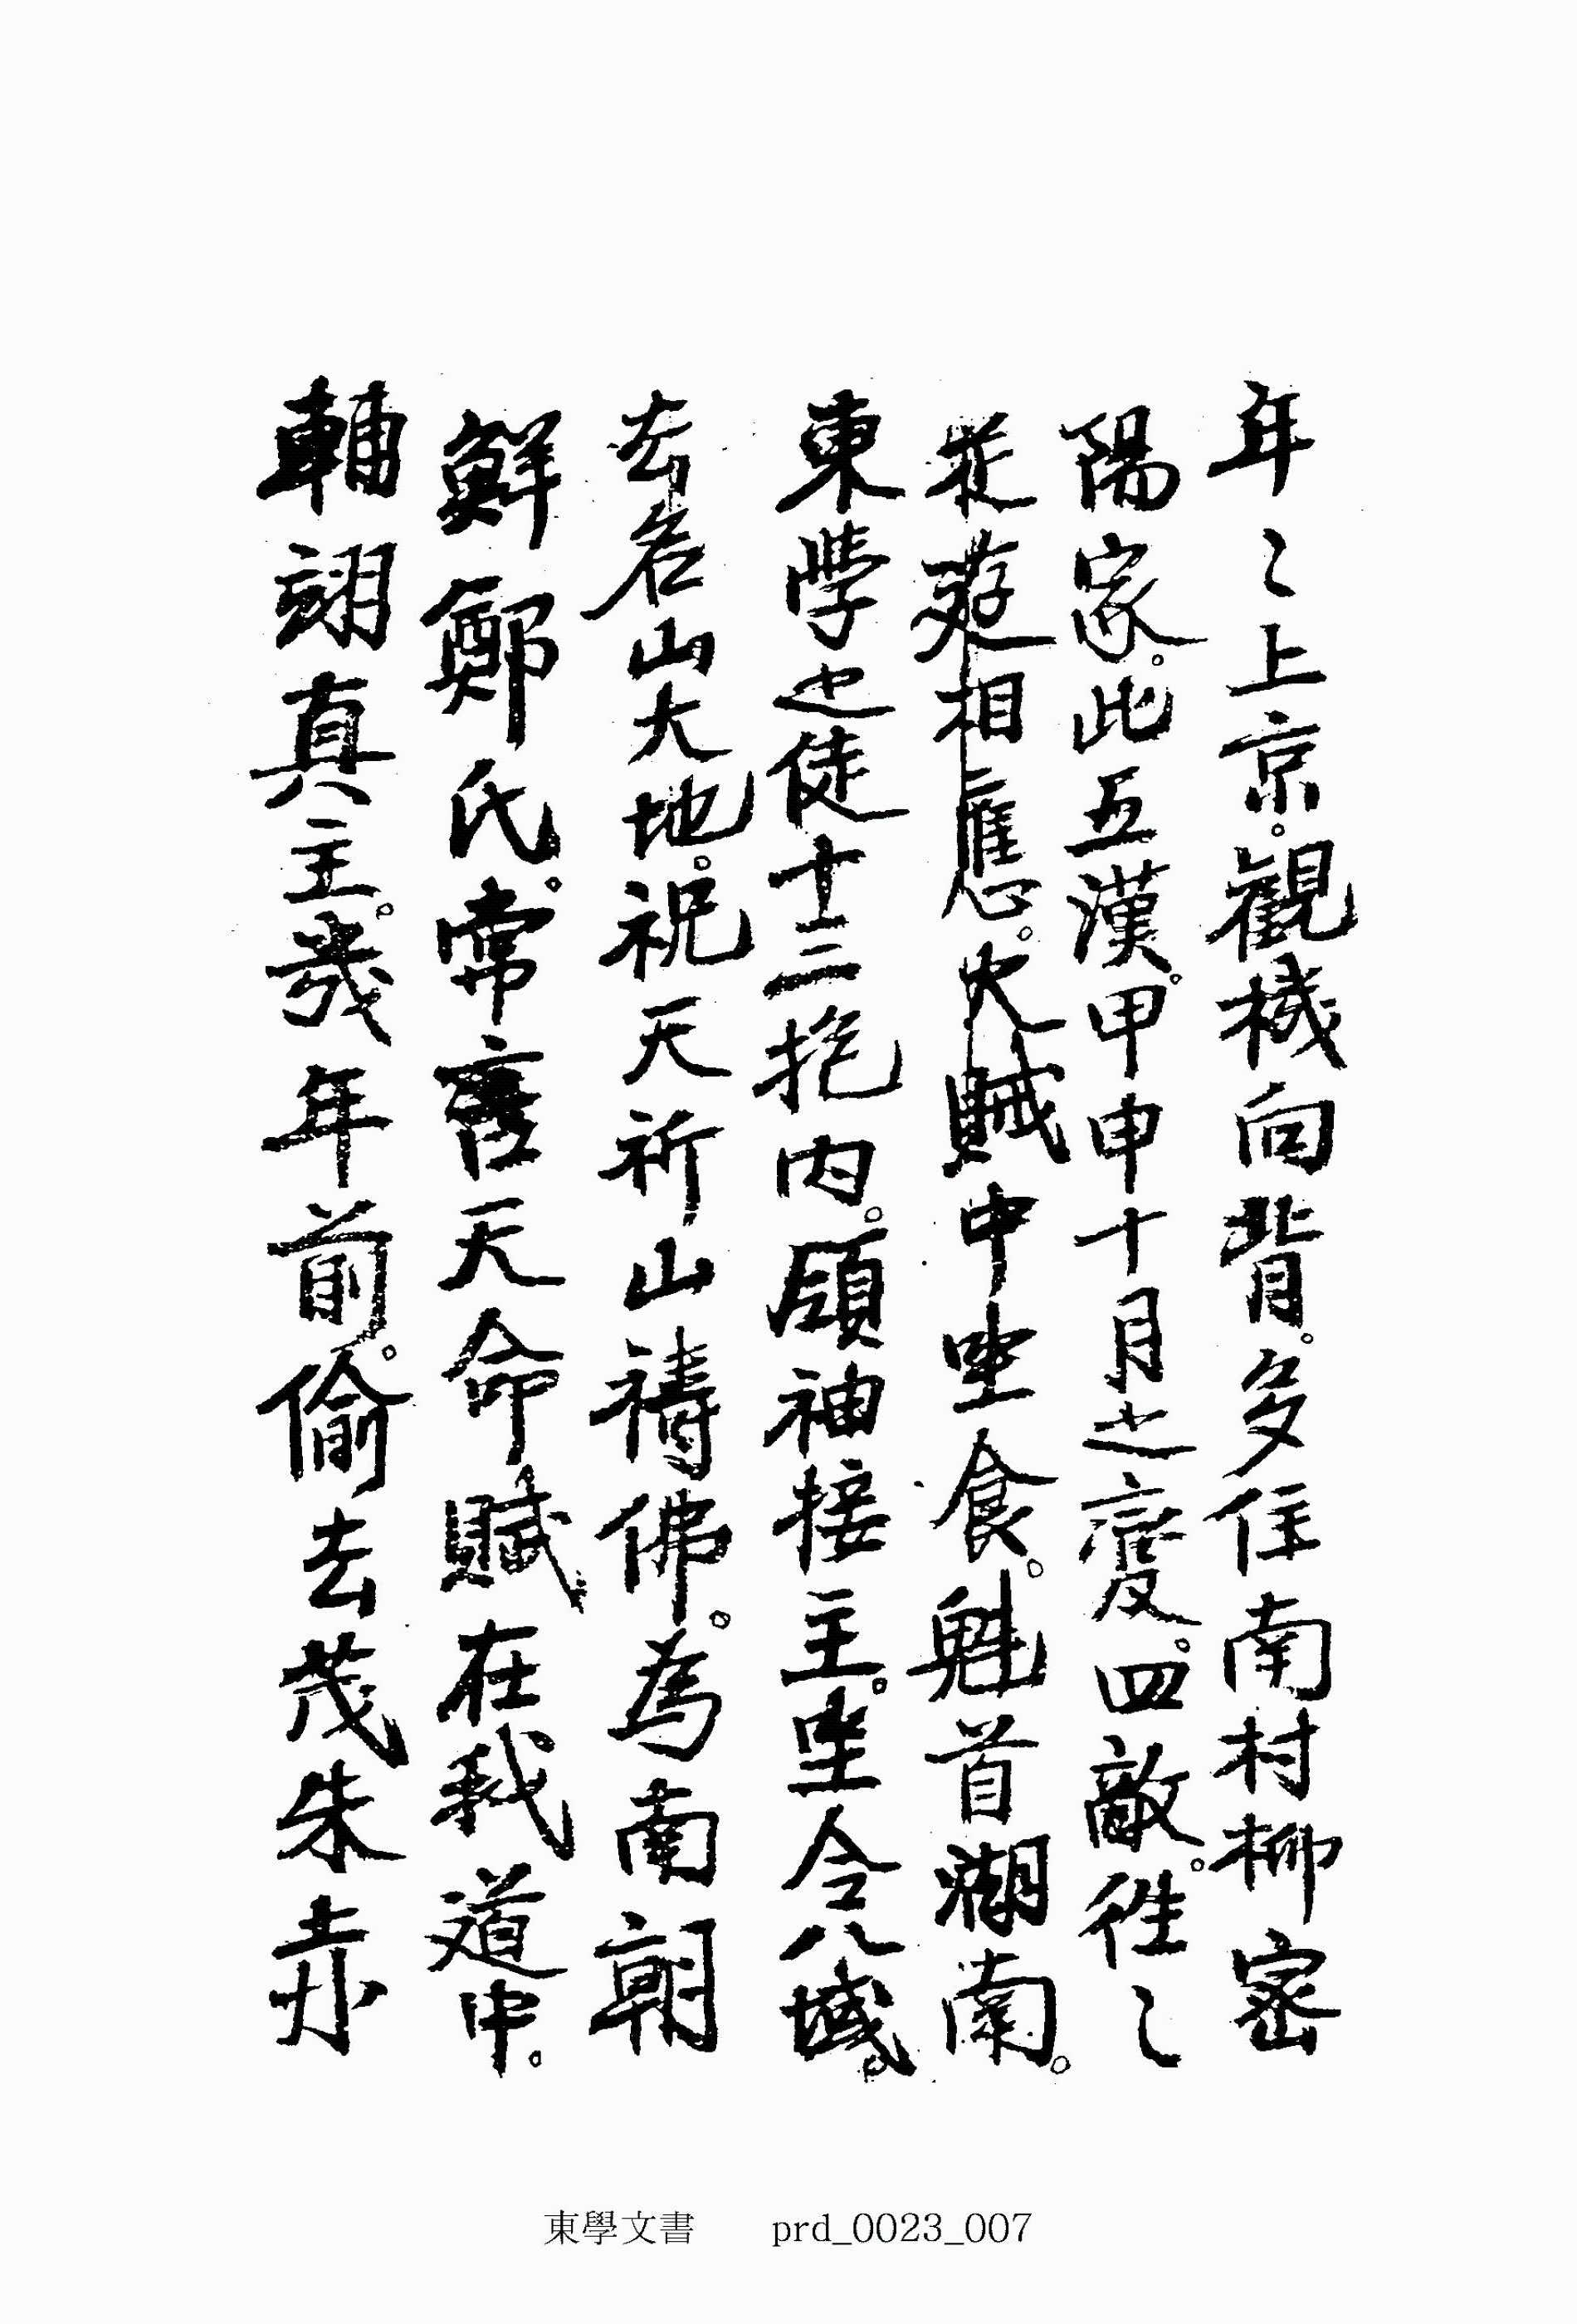 年〻上京。觀機向背。多住南村柳密
陽家。此五漢。甲申十月之變。四敵。徃〻
從遊相應。火賊中坐食。魁首湖南。
東學之徒十三抱內。頭袖接主。坐令八域。
去名山大地。祝天祈山禱佛。為南朝
鮮鄭氏。常言天命賦在我道中。
輔翊真主。幾年前。偷去茂朱赤
東學文書 prd_0023_007